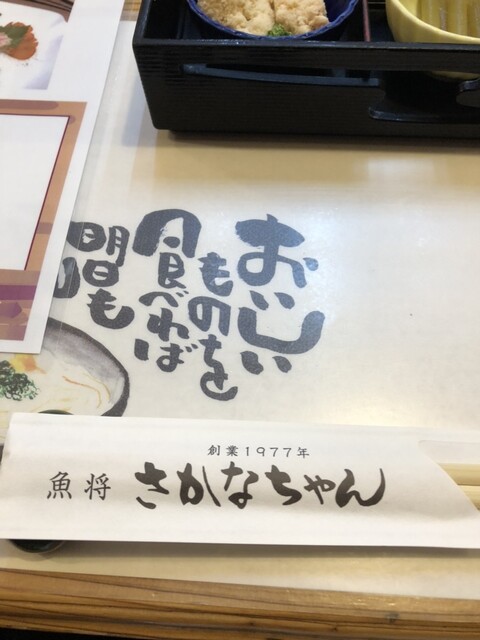 おいしい
ものを
食べれば
明日も
創業1977年
魚将 さかなちゃん